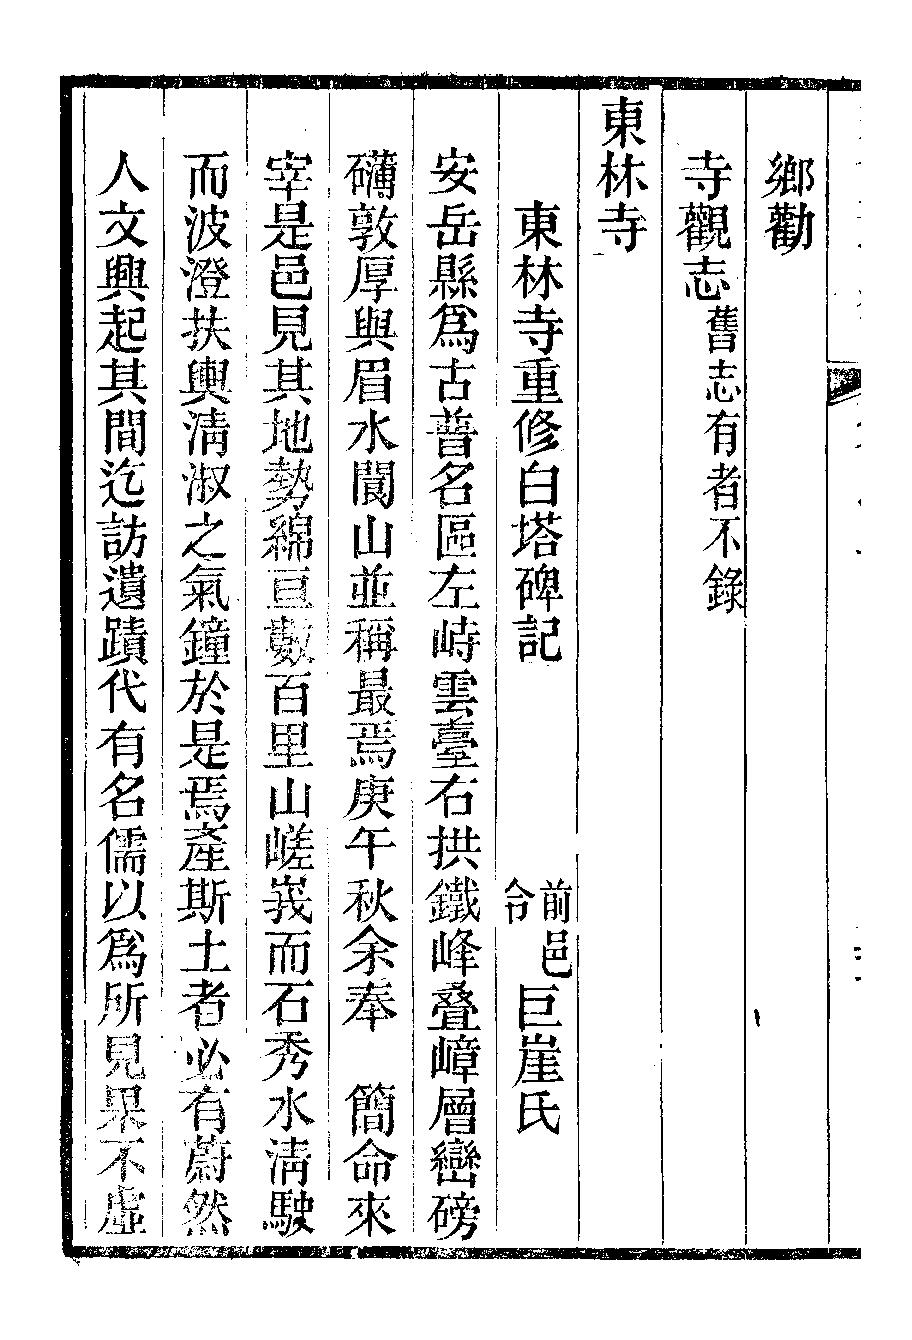 鄉勸
寺觀志舊志有者不錄
東林寺
東林寺重修白塔碑記 前邑令巨崖氏
安岳縣爲古普名區左峙雲臺右拱鐵峰叠嶂層巒磅
礴敦厚與眉水閬山並稱最焉庚午秋余奉 簡命來
宰是邑見其地勢綿亘數百里山嵯峩而石秀水清駛
而波澄扶輿淸淑之氣鐘於是焉產斯土者必有蔚然
人文興起其間迄訪遺蹟代有名儒以爲所見果不虛